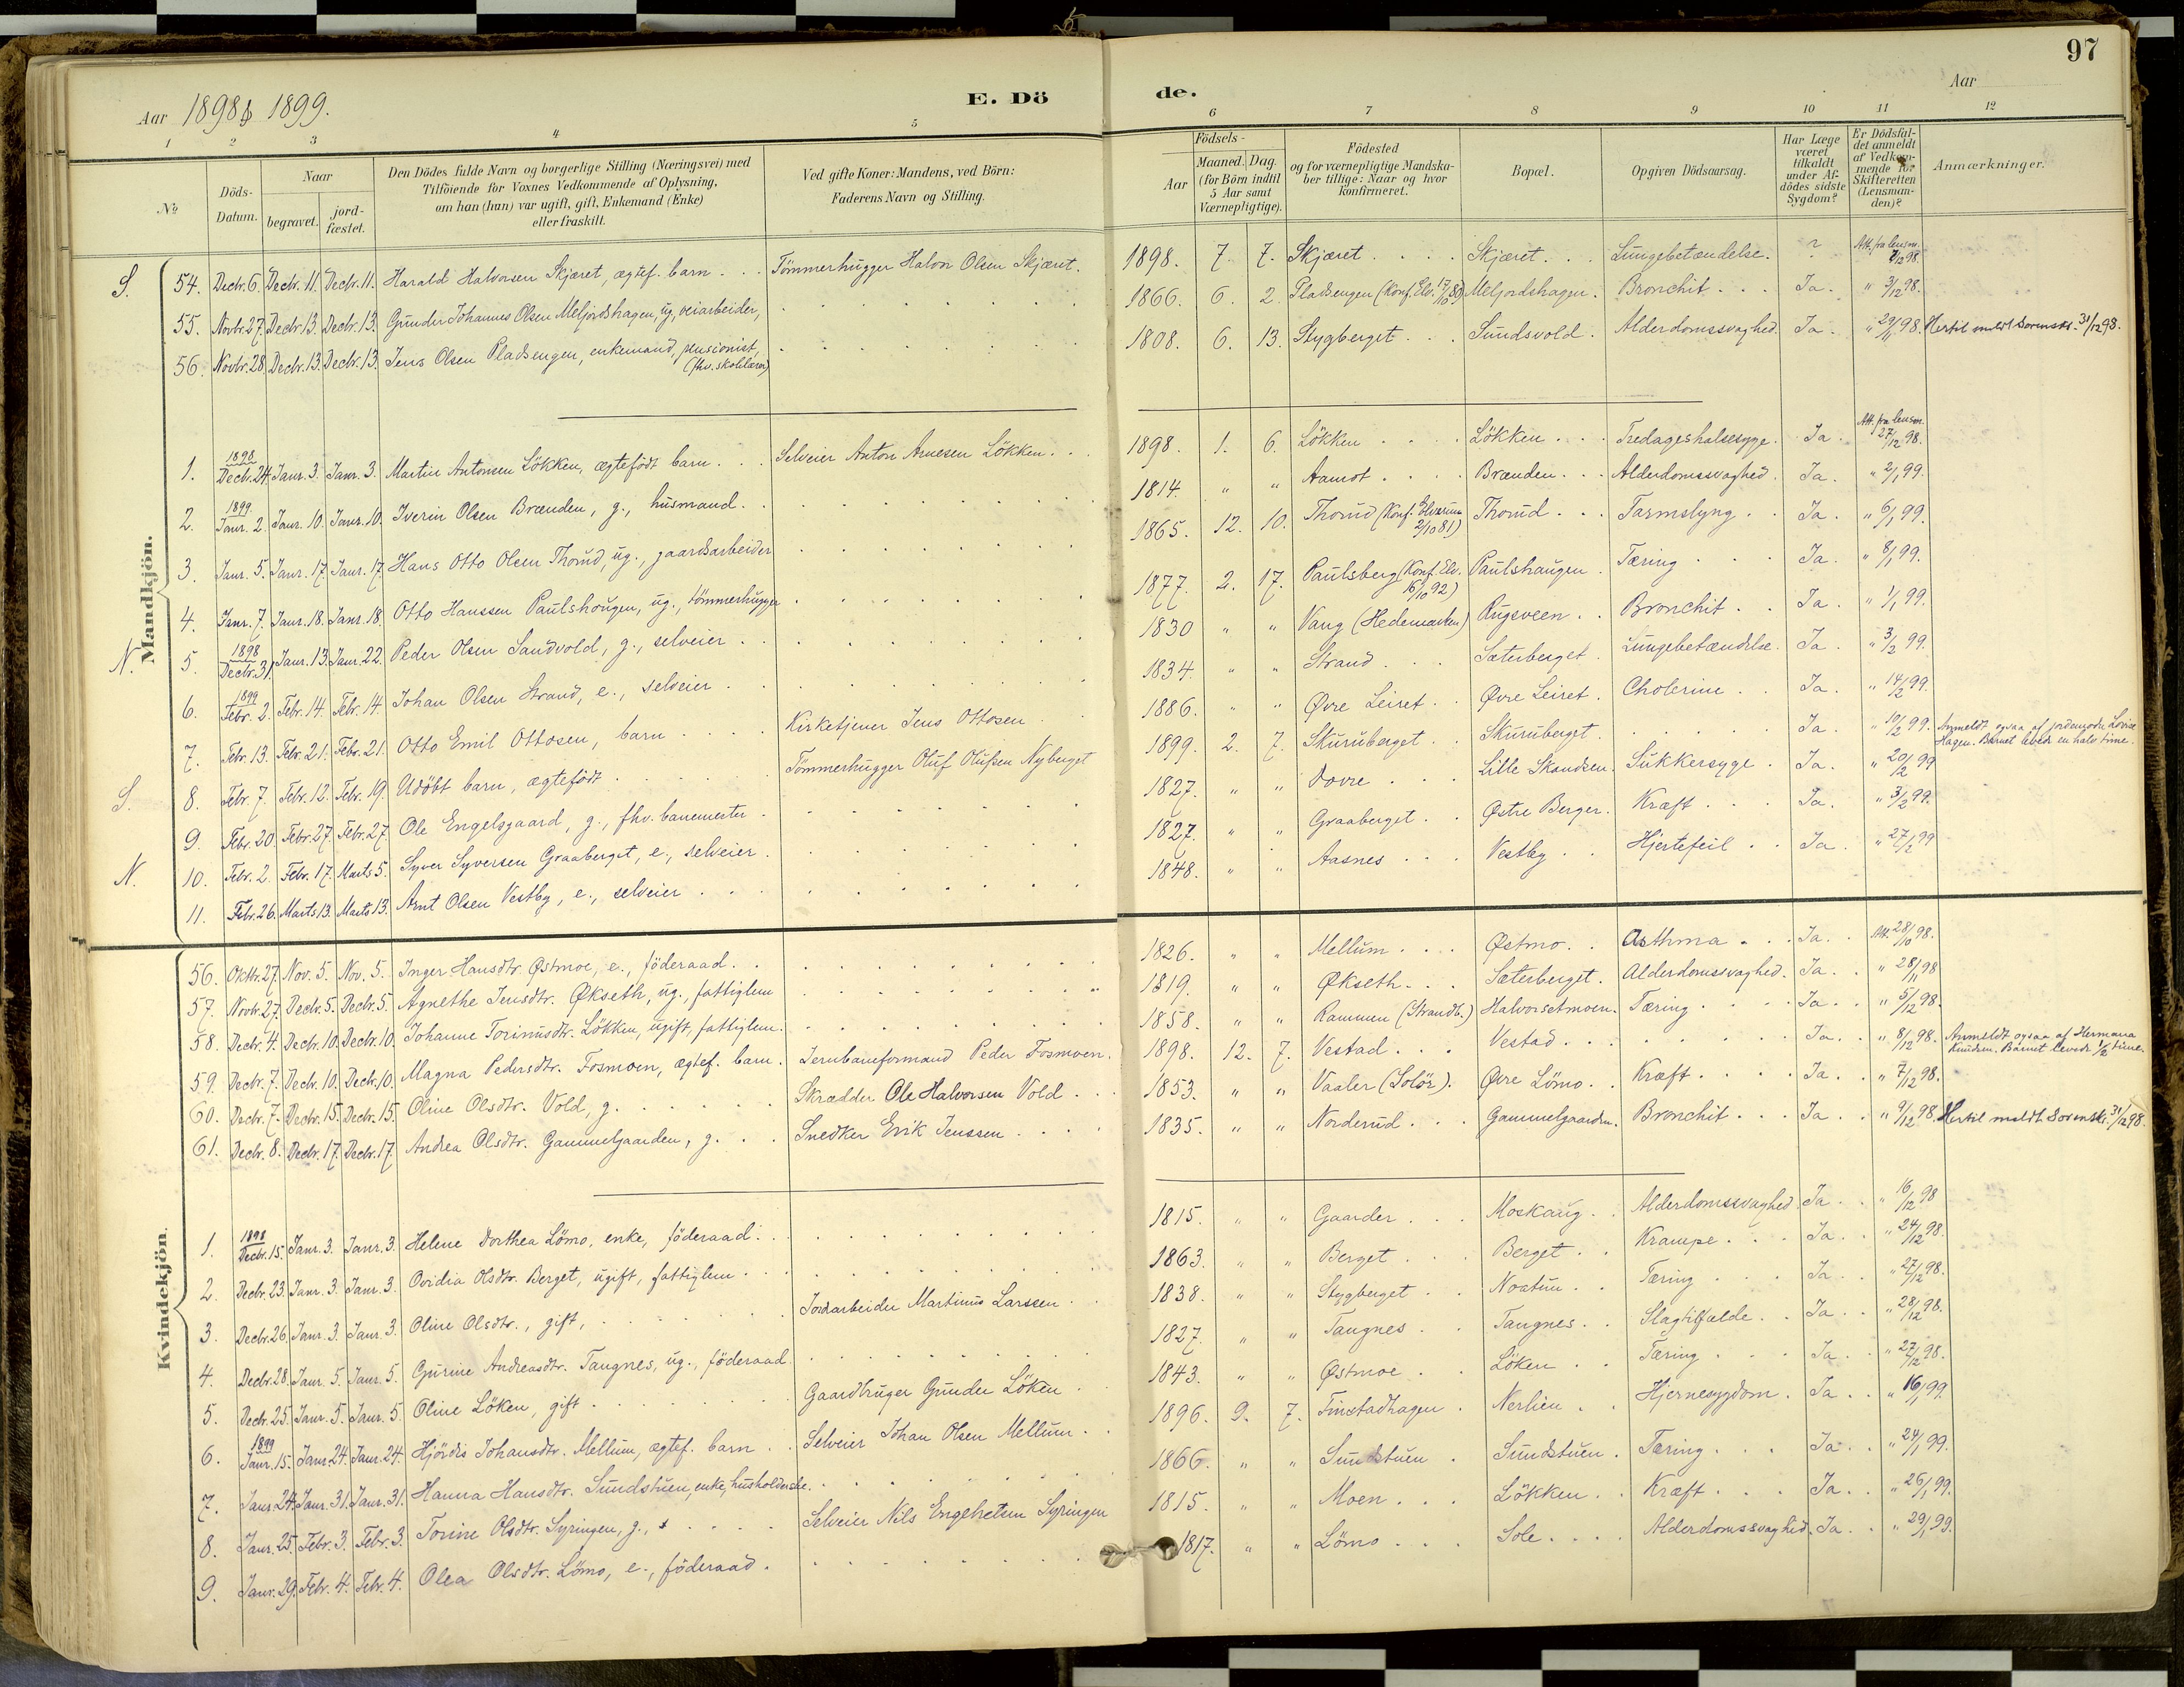 97
Aar 1898 & 1899.
E. Dö
de.
Aar
1 2 3 4 5 6 7 8 9 10 11 12
No
Döds-Datum.
Naar
begravet.
jord-fæstet.
Den Dödes fulde Navn og borgerlige Stilling (Næringsvei) med
Tilföiende for Voxnes Vedkommende af Oplysning,
om han (hun) var ugift, gift, Enkemand (Enke)
eller fraskilt.
Ved gifte Koner: Mandens, ved Börn:
Faderens Navn og Stilling.
Födsels-
Aar
Maaned. Dag.
(for Börn indtil
5 Aar samt
Værnepligtige).
Födested
og for værnepligtige Mandska-
ber tillige: Naar og hvor
konfirmeret.
Bopæl.
Opgiven Dödsaarsag.
Har Læge
været
tilkaldt
under Af-
dödes sidste
Sygdom?
Er Dödsfal-
det anmeldt
af Vedkom-
mende for
Skifteretten
(Lensman-
den)?
Anmærkninger.
Mandkjön.
S. 54. Decbr. 6. Decbr. 11. Decbr. 11. Harald Halvorsen Skjæret, ægtef. barn . . . Tömmerhugger Halvor Olsen Skjæret. 1898. 7. 7. Skjæret . . . . Skjæret . . . Lungebetændelse. ? Att. fra lensm. 7/12 98
55. Novbr. 27. Decbr. 13. Decbr. 13. Gunder Johannes Olsen Meljordshagen, ug, veiarbeider, 1866. 6. 2. Pladsengen (Konf. Elv. 17/10 80) Meljordshagen. Bronchit . . . Ja. " 3/12 98.
56. Novbr. 28. Decbr. 13. Decbr. 13. Jens Olsen Pladsengen, enkemand, pensionist, (fhv. skolelærer) 1808. 6. 13. Stygberget . . . Sundsvold. Alderdomssvaghed. Ja. " 29/11 98. Hertil meldt Sorenskr. 31/12 98.
1. 1898 Decbr. 24. Janr. 3. Janr. 3. Martin Antonsen Lökken, ægtefödt barn . . . Selveier Anton Arnesen Lökken. . . 1898. 1. 6. Lökken . . . . Lökken . . . Tredageshalsesyge. Ja. Att. fra lensm. 27/12 98.
2. 1899. Janr. 2. Janr. 10. Janr. 10. Iverin Olsen Brænden, g., husmand. 1814. " " Aamot . . . . Brænden . . . Alderdomssvaghed. Ja. " 2/1 99.
3. Janr. 5. Janr. 17. Janr. 17. Hans Otto Olsen Thorud, ug., gaardsarbeider 1865. 12. 10. Thorud (Konf. Elverum 2/10 81) Thorud . . . Tarmslyng . . Ja. " 6/1 99.
4. Janr. 7. Janr. 18. Janr. 18. Otto Hanssen Paulshougen, ug., tömmerhugger 1877. 2. 17. Paulsberg (Konf. Elv. 16/10 92) Paulshaugen. Tæring . . . Ja. " 8/1 99.
N. 5. 1898 Decbr. 31. Janr. 13. Janr. 22. Peder Olsen Sandvold, g., selveier . . 1830 " " Vang (Hedemarken) Rugsveen . . Bronchit . . Ja. " 1/1 99.
6. 1899 Febr. 2. Febr. 14. Febr. 14. Johan Olsen Strand, e., selveier . . 1834. " " Strand . . . Sæterberget. Lungebetændelse. Ja. " 3/2 99.
7. Febr. 13. Febr. 21. Febr. 21. Otto Emil Ottosen, barn . . . . Kirketjener Jens Ottosen . . 1886. " " Øvre Leiret . . Øvre Leiret. Cholerine . . Ja. " 14/2 99.
S. 8. Febr. 7. Febr. 12. Febr. 19. Udöbt barn, ægtefödt . . . . . . Tömmerhugger Oluf Olufsen Nyberget 1899. 2. 7. Skuruberget . . Skuruberget. . . . . . Ja. " 10/2 99. Anmeldt ogsaa af jordemoder Lovise Hagen. Barnet levede en halv time.
9. Febr. 20. Febr. 27. Febr. 27. Ole Engelsgaard, g., fhv. banemester . 1827. " " Dovre . . . Lille Skandsen. Sukkersyge . Ja. " 20/2 99
N. 10. Febr. 2. Febr. 17. Marts 5. Syver Syversen Graaberget, e., selveier. 1827. " " Graaberget. . Østre Berger. Kræft . . . Ja. " 3/2 99.
11. Febr. 26. Marts 13. Marts 13. Arnt Olsen Vestby, e., selveier . . . 1848. " " Aasnes . . . Vestby . . Hjertefeil . . Ja. " 27/2 99
Kvindekjön.
56. Oktbr. 27. Nov. 5. Nov. 5. Inger Hansdtr. Østmoe, e., föderaad. . 1826. " " Mellum . . . Østmo. . Asthma . . . Ja. . Att. 28/10 98.
57. Novbr. 27. Decbr. 5. Decbr. 5. Agnethe Jensdtr. Økseth, ug., fattiglem 1819. " " Økseth. . . Sæterberget. Alderdomssvaghed. Ja. . " 28/11 98
58. Decbr. 4. Decbr. 10. Decbr. 10. Johanne Torinusdtr. Lökken, ugift, fattiglem. 1858. " " Rammen (Strandb.) Halvorsetmoen. Tæring . . . . Ja. . " 5/12 98.
59. Decbr. 7. Decbr. 10. Decbr. 10. Magna Pedersdtr. Fosmoen, ægtef. barn. Jernbaneformand Peder Fosmoen. 1898. 12. 7. Vestad . . . Vestad . . . . . . Ja. . " 8/12 98. Anmeldt ogsaa af Hermana Knudsen. Barnet levede 1/2 time.
60. Decbr. 7. Decbr. 15. Decbr. 15. Oline Olsdtr. Vold, g. . . . . . . Skrædder Ole Halvorsen Vold . . . 1853. " " Vaaler (Solör). Øvre Lömo. . Kræft . . . . Ja. . " 7/12 98.
61. Decbr. 8. Decbr. 17. Decbr. 17. Andrea Olsdtr. Gammelgaarden, g. . . Snedker Erik Jenssen . . . . 1835. " " Norderud . . . Gammelgaarden. Bronchit . . . Ja. . " 9/12 98. Hertil meldt Sorenskr. 31/12 98.
1. 1898 Decbr. 15. Janr. 3. Janr. 3. Helene Dorthea Lömo, enke, föderaad. . 1815. " " Gaarder . . . Moskaug. . Alderdomssvaghed. Ja. . " 16/12 98
2. Decbr. 23. Janr. 3. Janr. 3. Ovidia Olsdtr. Berget, ugift, fattiglem . . 1863. " " Berget . . . Berget . . Krampe . . . Ja. . " 24/12 98.
3. Decbr. 26. Janr. 3. Janr. 3. Oline Olsdtr., gift, . . . . . . . Jordarbeider Martinus Larssen . . 1838. " " Stygberget . . Noatun . . Tæring . . . Ja. . " 27/12 98.
4. Decbr. 28. Janr. 5. Janr. 5. Gurine Andreasdtr. Tangnes, ug., föderaad 1827. " " Tangnes . . Tangnes. . Slagtilfælde. . Ja. . " 28/12 98.
5. Decbr. 25. Janr. 5. Janr. 5. Oline Löken, gift . . . . . . . Gaardbruger Gunder Löken . . 1843. " " Østmoe . . Löken . . Tæring . . . Ja. . " 27/12 98.
6. 1899 Janr. 15. Janr. 24. Janr. 24. Hjördis Johansdtr. Mellum, ægtef. barn . . Selveier Johan Olsen Mellum. . . 1896. 9. 7. Finstadhagen . Nerlien . . Hjernesygdom. Ja. . " 16/1 99.
7. Janr. 24. Janr. 31. Janr. 31. Hanna Hansdtr. Sundstuen, enke, husholderske. 1866. " " Sundstuen . Sundstuen. Tæring . . . Ja. . " 24/1 99.
8. Janr. 25. Febr. 3. Febr. 3. Torine Olsdtr. Syringen, g., . . . . Selveier Nils Engebretsen Syringen 1815. " " Moen . . . Lökken . . Kræft . . . Ja. . " 26/1 99.
9. Janr. 29. Febr. 4. Febr. 4. Olea Olsdtr. Lömo, e., föderaad. 1817. " " Lömo . . . Sole . . . . Alderdomssvaghed. Ja. . " 29/1 99.